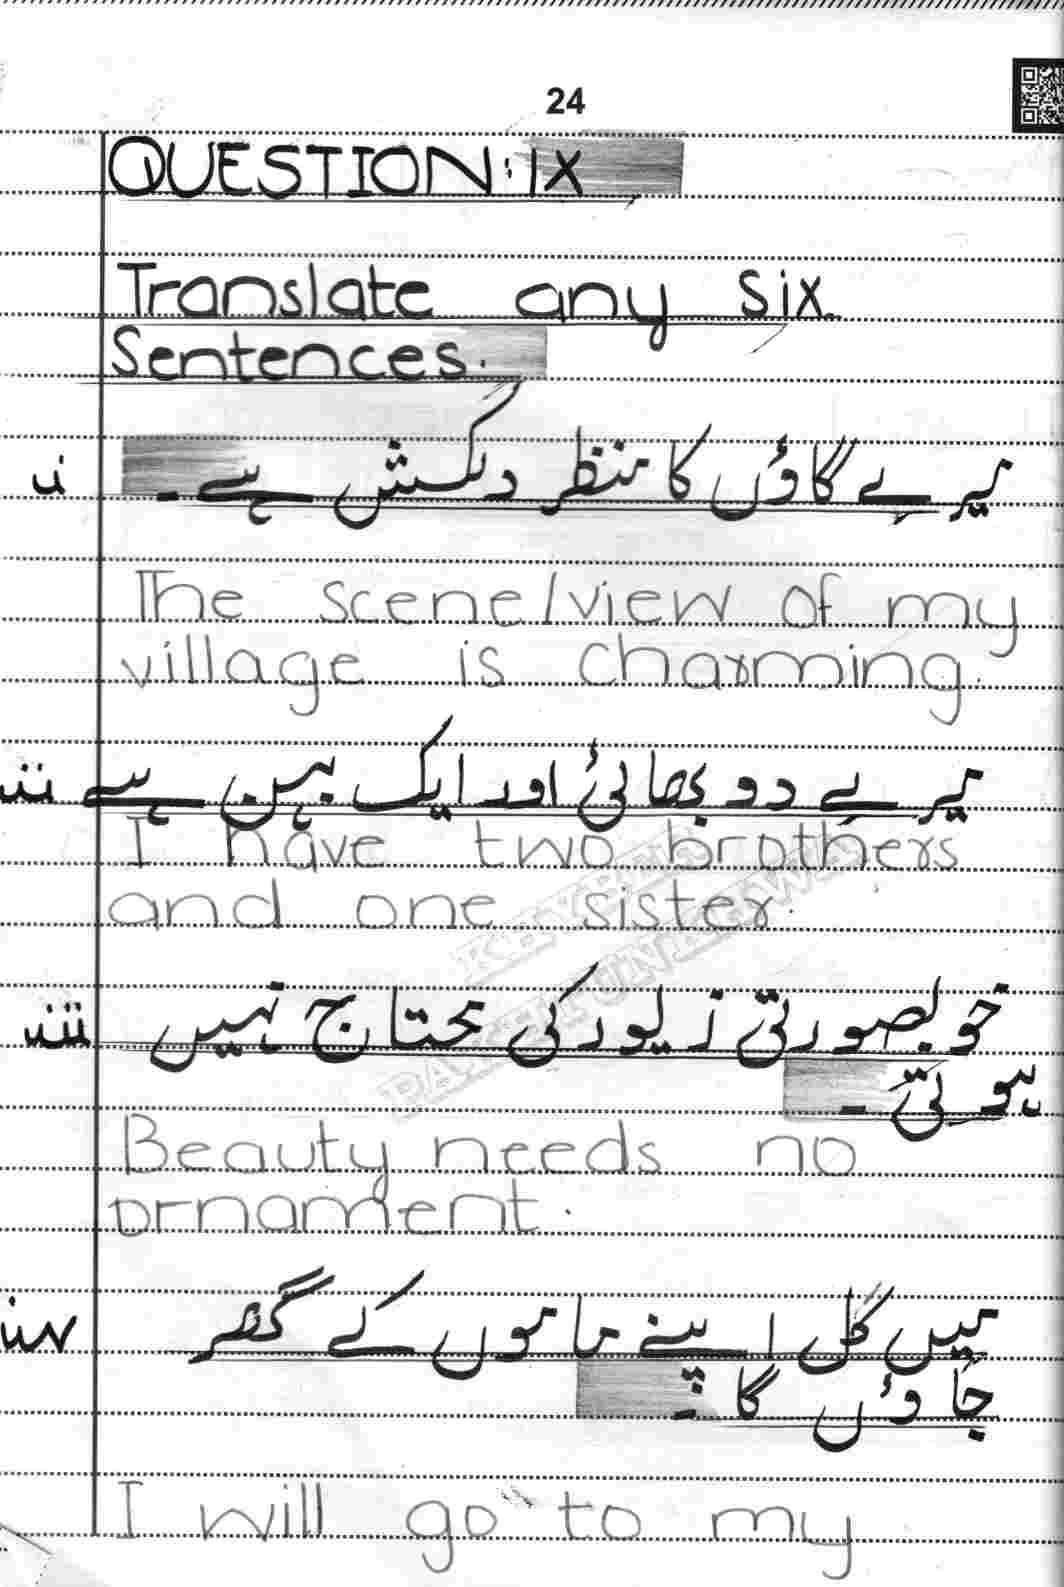 24
QUESTION: IX
Translate any six
Sentences.
i میرے گاؤں کا منظر دلکش ہے۔
The scene/view of my
village is charming.
ii میرے دو بھائی اور ایک بہن ہے
I have two brothers
and one sister.
KHYBER
PAKHTUNKHWA
iii خوبصورتی زیور کی محتاج نہیں
ہوتی۔
Beauty needs no
ornament.
iv میں کل اپنے ماموں کے گھر
جاؤں گا۔
I will go to my